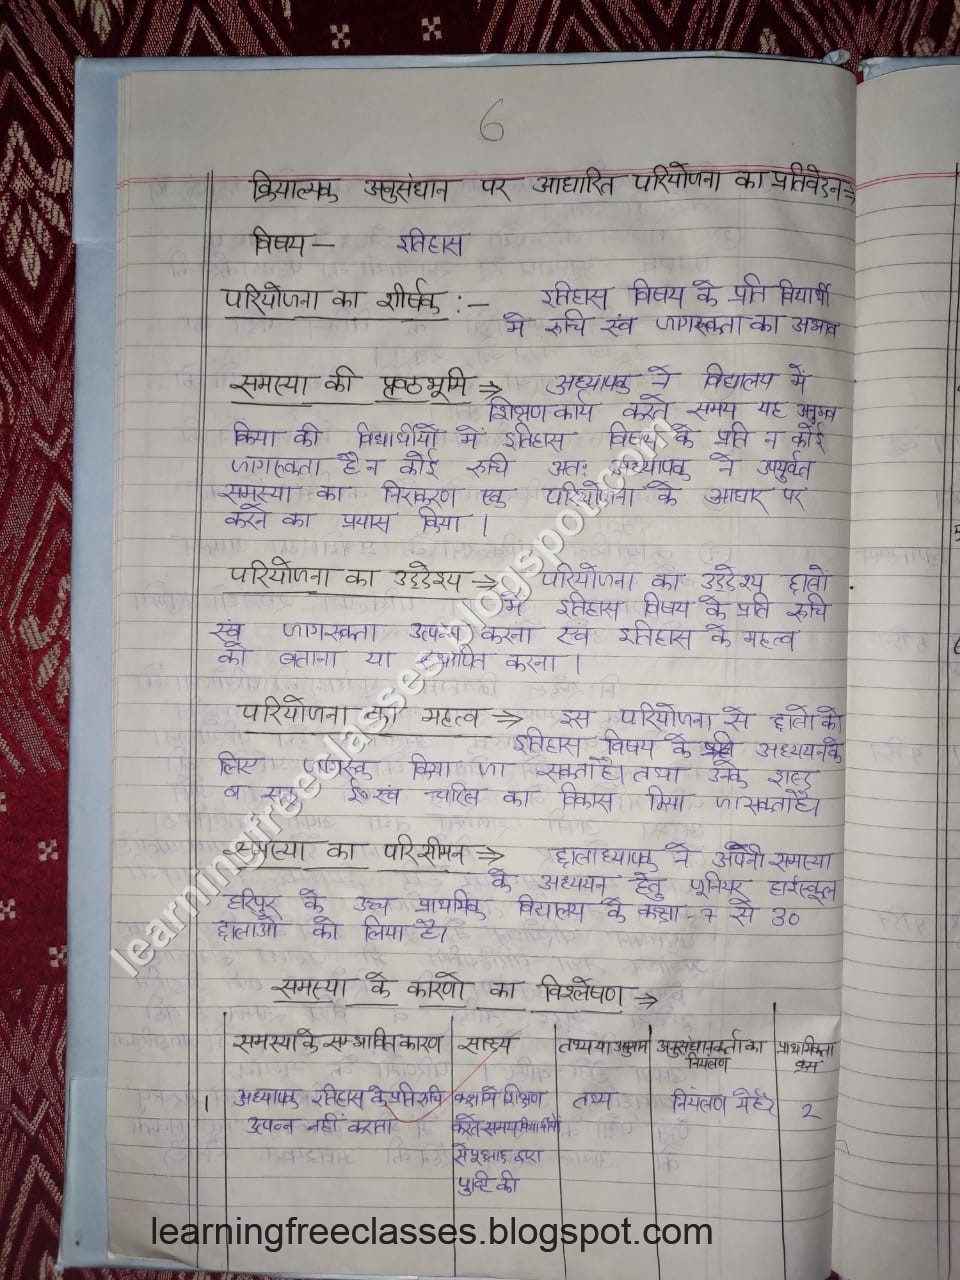 6
क्रियात्मक अनुसंधान पर आधारित परियोजना का प्रतिवेदन →
विषय — इतिहास
परियोजना का शीर्षक :— इतिहास विषय के प्रति विद्यार्थी
मे रुचि एवं जागरुकता का अभाव
समस्या की पृष्ठभूमि → अध्यापक ने विद्यालय में
शिक्षण कार्य करते समय यह अनुभव
किया की विद्यार्थीयों में इतिहास विषय के प्रति न कोई
जागरुकता है न कोई रुचि अतः अध्यापक ने उपर्युक्त
समस्या का निराकरण एक परियोजना के आधार पर
करने का प्रयास किया ।
परियोजना का उद्देश्य → परियोजना का उद्देश्य छात्रों
में इतिहास विषय के प्रति रुचि
एवं जागरुकता उत्पन्न करना एवं इतिहास के महत्व
को बताना या स्थापित करना ।
परियोजना का महत्व → इस परियोजना से छात्रो को
इतिहास विषय के अध्ययन के
लिए जागरुक किया जा सकता है। तथा उनके
एवं चरित्र का विकास किया जा सकता है।
समस्या का परिसीमन → छात्राध्यापक ने अपनी समस्या
के अध्ययन हेतु जूनियर हाईस्कूल
हरिपुर के उच्च प्राथमिक विद्यालय के कक्षा - 7 से 30
छात्राओ को लिया है।
समस्या के कारणो का विश्लेषण →
समस्या के सम्भावित कारण साक्ष्य तथ्य या अनुमान अनुसंधानकर्ता का नियंत्रण प्राथमिकता क्रम
1 अध्यापक इतिहास के प्रति रुचि कक्षा में शिक्षण तथ्य नियंत्रण मे है 2
उत्पन्न नहीं करता करते समय विद्यार्थीयों
से पूछताछ द्वारा
पुष्टि की
learningfreeclasses.blogspot.com
learningfreeclasses.blogspot.com